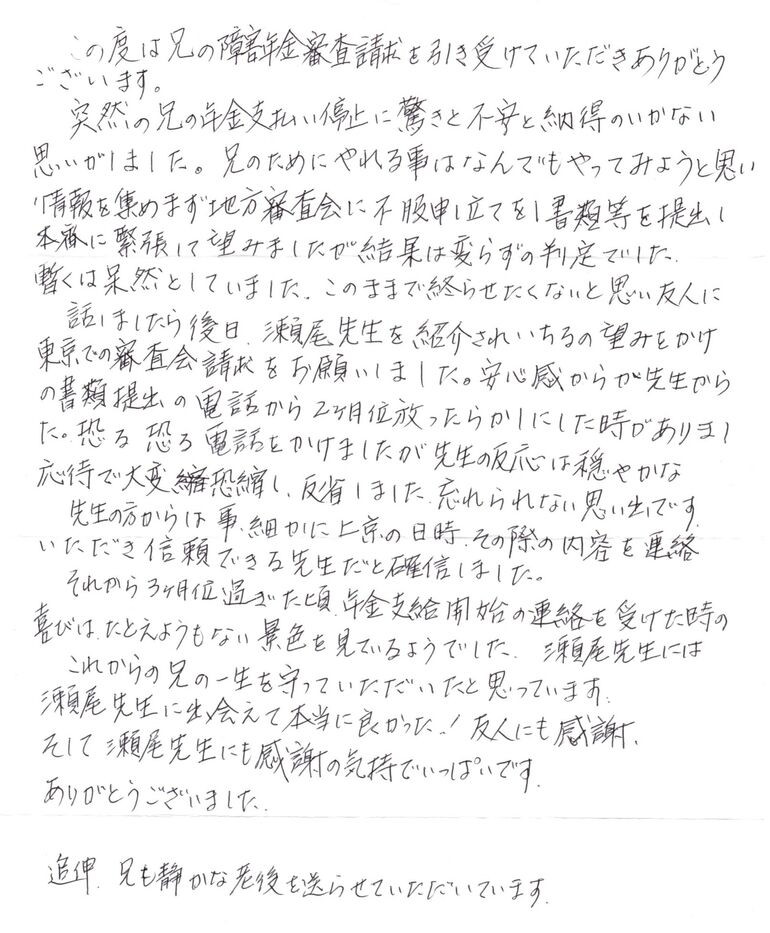 この度は兄の障害年金審査請求を引き受けていただきありがとう
ございます。
突然の兄の年金支払い停止に驚きと不安と納得のいかない
思いがしました。兄のためにやれる事はなんでもやってみようと思い
情報を集めまず地方審査会に不服申し立てをし書類等を提出し
本審に緊張して望みましたが結果は変らずの判定でした.
暫くは呆然としていました.このままで終らせたくないと思い友人に
話しましたら後日.瀬尾先生を紹介されいちるの望みをかけ
東京での審査会請求をお願いしました。安心感からか先生から
の書類提出の電話から2ヶ月位放ったらかしにした時がありまし
た。恐る恐る電話をかけましたが先生の反応は穏やかな
応待で大変恐縮し、反省しました.忘れられない思い出です.
先生の方からは事.細かに上京の日時.その際の内容を連絡
いただき信頼できる先生だと確信しました。
それから3ヶ月位過ぎた頃.年金支給開始の連絡を受けた時の
喜びは.たとえようもない景色を見ているようでした.瀬尾先生には
これからの兄の一生を守っていただいたと思っています.
瀬尾先生に出会えて本当に良かった!友人にも感謝.
そして瀬尾先生にも感謝の気持でいっぱいです.
ありがとうございました.
追伸.兄も静かな老後を送らせていただいています.